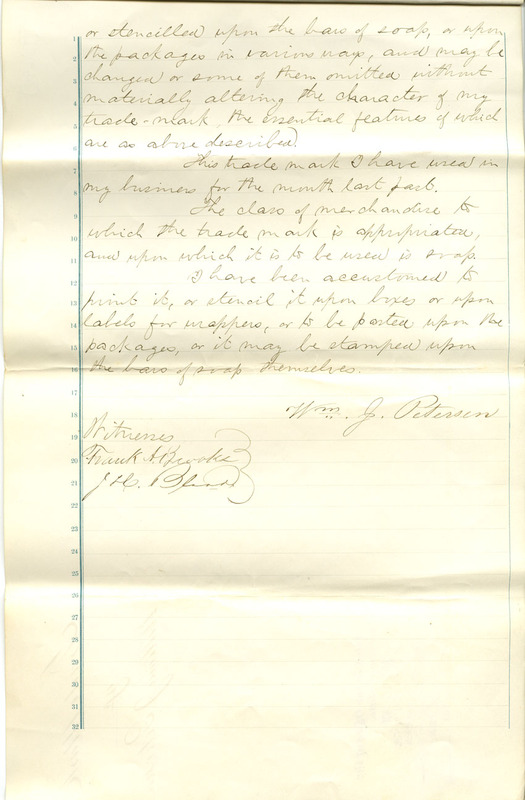 or stencilled upon the bars of soap, or upon
the packages in various ways, and may be
changed or some of them omitted without
materially altering the character of my
trade-mark the essential features of which
are as above described.
This trade mark I have used in
my business for the month last past.
The class of merchandise to
which the trade mark is appropriated,
and upon which it is to be used is soap.
I have been accustomed to
print it, or stencil it upon boxes or upon
labels for wrappers, or to be pasted upon the
packages, or it may be stamped upon
the bars of soap themselves.
Wm. J. Petersen
Witnesses
Frank A Brooks
J H.
1
2
3
4
5
6
7
8
9
10
11
12
13
14
15
16
17
18
19
20
21
22
23
24
25
26
27
28
29
30
31
32